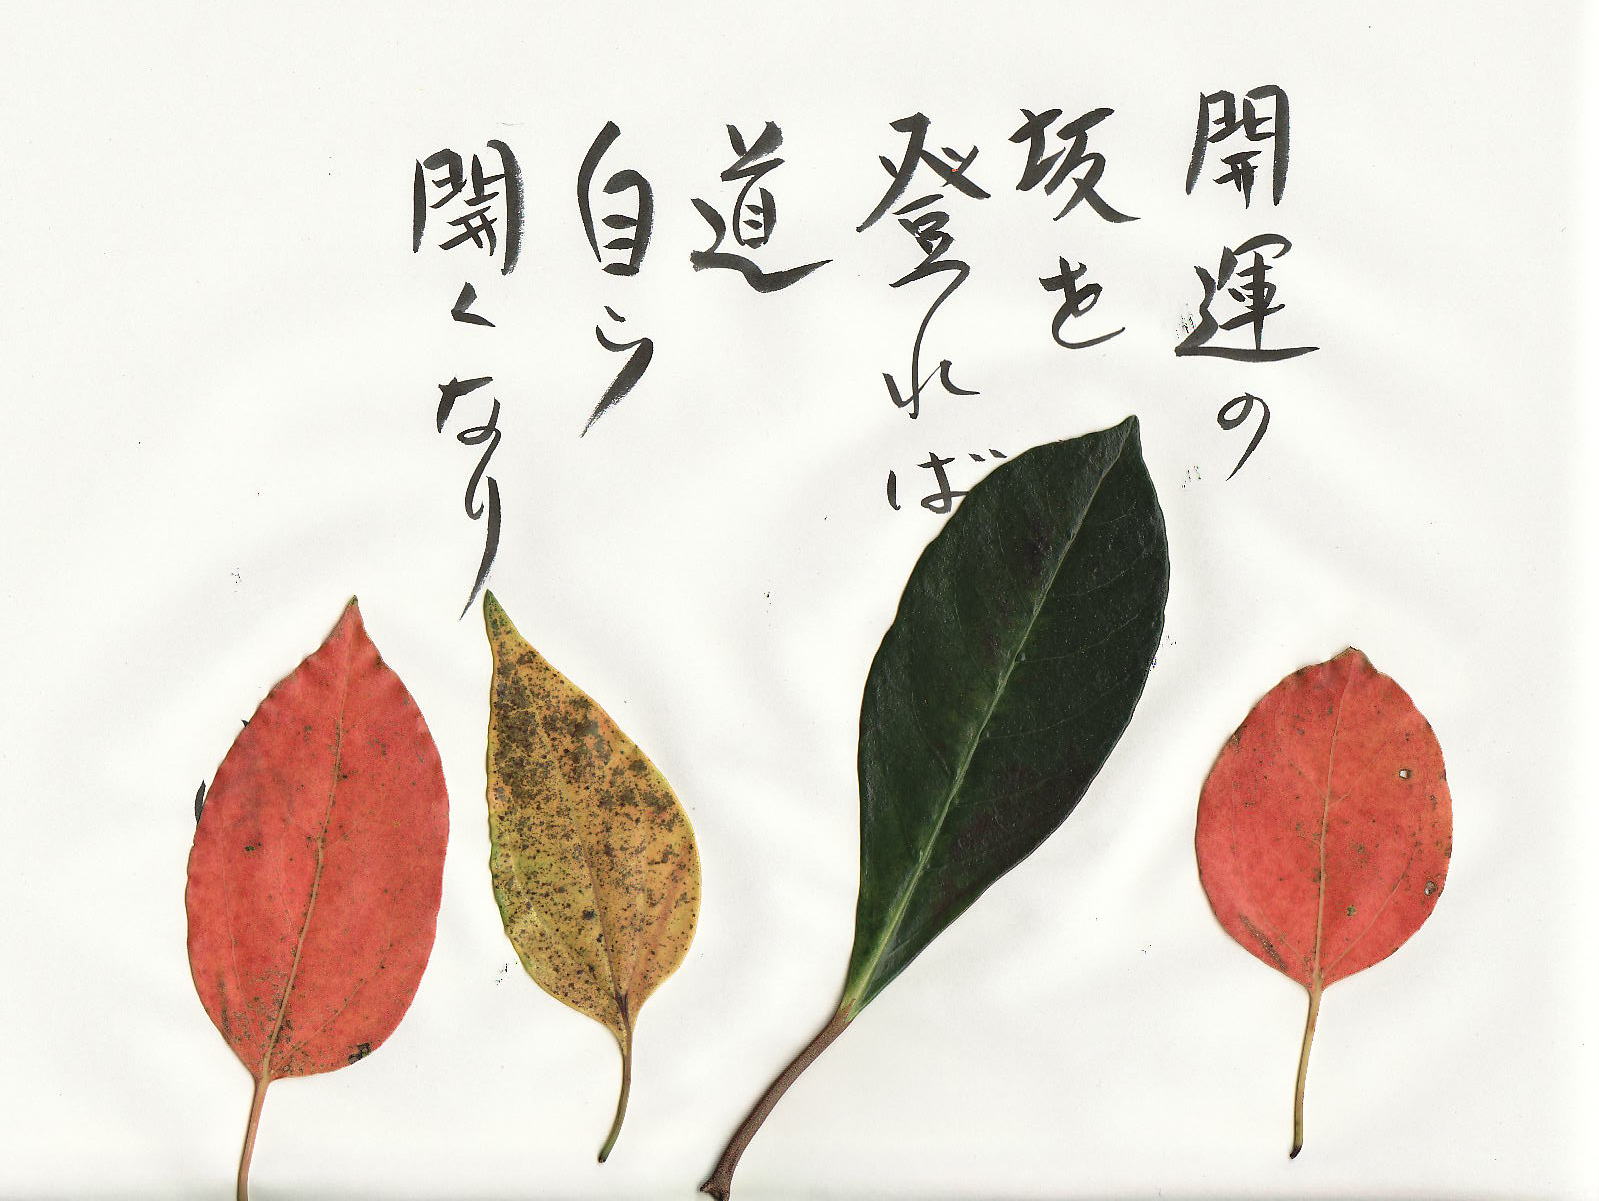 開運の
坂を
登れば
道
自ら
開くなり